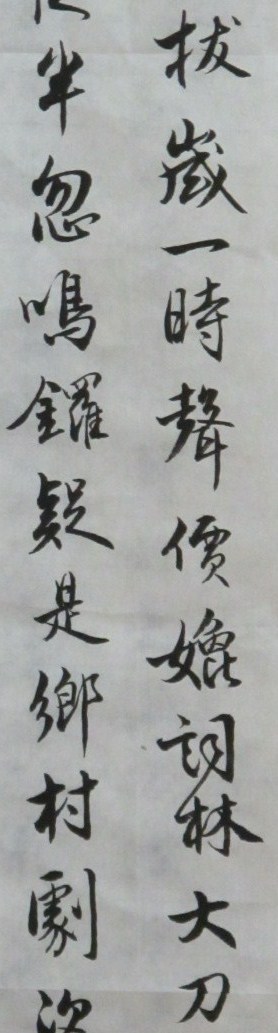 拔歲一時聲價媲詞林大刀
半忽鳴鑼疑是鄉村劇